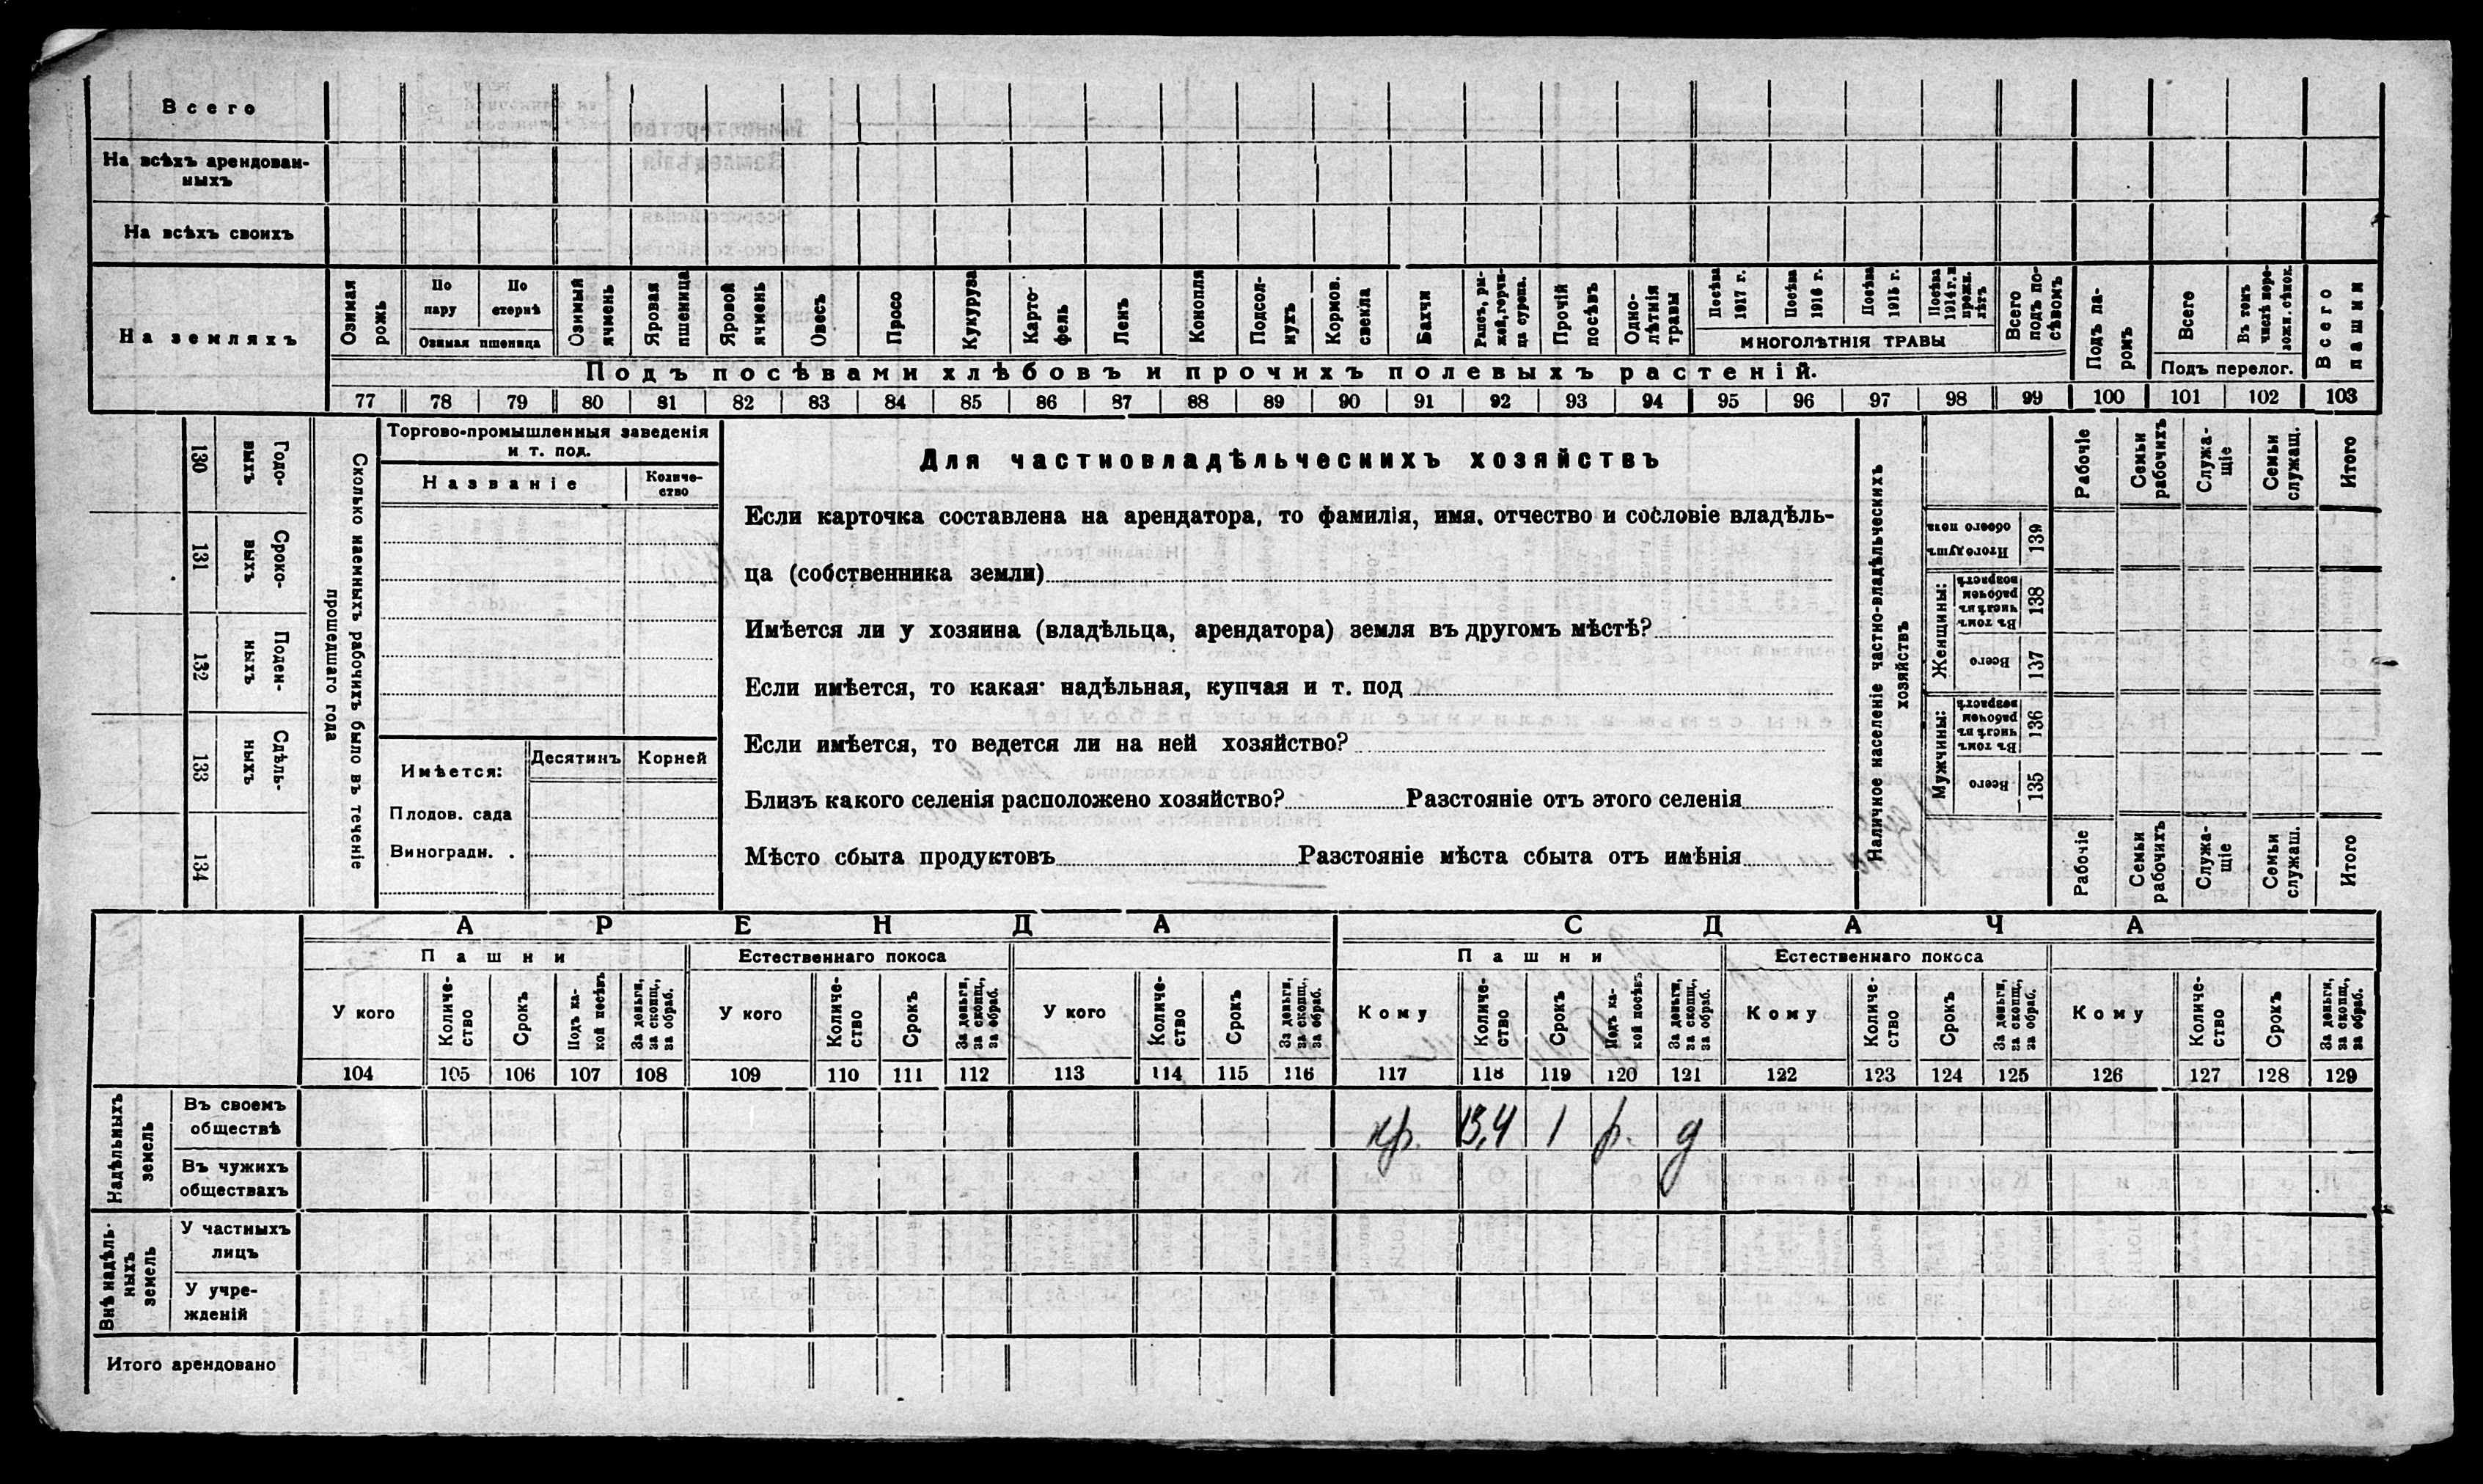 Всего
На всѣхъ арендован-
ныхъ
На всѣхъ своихъ
На земляхъ
Озимая рожь
По пару
По стернѣ
Озимая пшеница
Озимый ячмень
Яровая пшеница
Яровой ячмень
Овесъ
Просо
Кукуруза
Карто-
фель
Ленъ
Конопля
Подсол-
нухъ
Кормов. свекла
Бахчи
Рапсъ, ры-
жей, горчи-
ца сурепа.
Прочій посѣвъ
Одно-
лѣтнія травы
Посѣва 1917 г.
Посѣва 1916 г.
Посѣва 1915 г.
Посѣва 1914 г. и прежн. лѣтъ
МНОГОЛѢТНІЯ ТРАВЫ
Всего подъ по-
сѣвомъ
Подъ па-
ромъ
Всего
Въ томъ числѣ пере-
ложн. сѣнок.
Подъ перелог.
Всего пашни
Подъ посѣвами хлѣбовъ и прочихъ полевыхъ растеній.
77 78 79 80 81 82 83 84 85 86 87 88 89 90 91 92 93 94 95 96 97 98 99 100 101 102 103
130 Годо-
выхъ
131 Сроко-
выхъ
132 Поден-
ныхъ
133 Сдѣль-
ныхъ
134
Сколько наемныхъ рабочихъ было въ теченіе
прошедшаго года
Торгово-промышленныя заведенія
и т. под.
Названіе
Количе-
ство
Имѣется:
Десятинъ
Корней
Плодов. сада
Виноградн. .
Для частновладѣльческихъ хозяйствъ
Если карточка составлена на арендатора, то фамилія, имя, отчество и сословіе владѣль-
ца (собственника земли)
Имѣется ли у хозяина (владѣльца, арендатора) земля въ другомъ мѣстѣ?
Если имѣется, то какая надѣльная, купчая и т. под
Если имѣется, то ведется ли на ней хозяйство?
Близъ какого селенія расположено хозяйство? Разстояніе отъ этого селенія
Мѣсто сбыта продуктовъ Разстояніе мѣста сбыта отъ имѣнія
Наличное населеніе частно-владѣльческихъ
хозяйствъ
Рабочіе
Семьи рабочихъ
Служа-
щіе
Семьи служащ.
Итого
Итого душъ обоего пола 139
Женщины:
Въ томъ числѣ въ рабочемъ возрастѣ 138
Всего 137
Мужчины:
Въ томъ числѣ въ рабочемъ возрастѣ 136
Всего 135
Рабочіе
Семьи рабочихъ
Служа-
щіе
Семьи служащ.
Итого
АРЕНДА
СДАЧА
Пашни
Естественнаго покоса
Пашни
Естественнаго покоса
У кого
Количе-
ство
Срокъ
Подъ ка-
кой посѣвъ
За деньги, за скопщ., за обраб.
У кого
Количе-
ство
Срокъ
За деньги, за скопщ., за обраб.
У кого
Количе-
ство
Срокъ
За деньги, за скопщ., за обраб.
Кому
Количе-
ство
Срокъ
Подъ ка-
кой посѣвъ
За деньги, за скопщ., за обраб.
Кому
Количе-
ство
Срокъ
За деньги, за скопщ., за обраб.
Кому
Количе-
ство
Срокъ
За деньги, за скопщ., за обраб.
104 105 106 107 108 109 110 111 112 113 114 115 116 117 118 119 120 121 122 123 124 125 126 127 128 129
Надѣльныхъ
земель
Въ своемъ
обществѣ
кр. 13,4 1 р. д
Въ чужихъ
обществахъ
Внѣ надѣль-
ныхъ
земель
У частныхъ
лицъ
У учре-
жденій
Итого арендовано